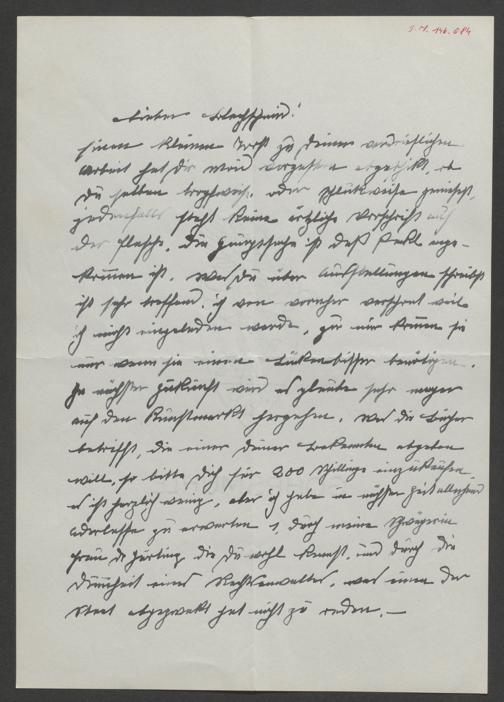 J.N. 146.084
Lieber Blechschmid!
einen kleinen Trost zu Deiner verdrießlichen
Arbeit hat Dir Mimi vorgestern abgeschickt, ob
Du selben tropfweise, oder schluckweise genießest,
jedenfalls steht keine ärztliche Vorschrift auf
der Flasche. Die Hauptsache ist daß Pakl ange-
kommen ist. Was Du über Ausstellungen schreibst
ist sehr treffend. ich von vornher verschont weil
ich nicht eingeladen werde, zu mir kommen sie
nur wenn sie einen Lückenbüsser benötigen.
In nächster Zukunft wird es glaube sehr mager
auf dem Kunstmarkt hergehen. Was die Bücher
betrifft, die einer Deiner Bekannten abgeben
will, so bitte Dich für 200 Schillinge einzukaufen
es ist herzlich wenig, aber ich habe in nächster Zeit allerhand
Aderlasse zu erwarten, durch meine Schwägerin
Frau die Du wohl kennst, und durch die
Dummheit eines Rechtsanwaltes, was einem der
Staat abgezwackt hat nicht zu reden. —